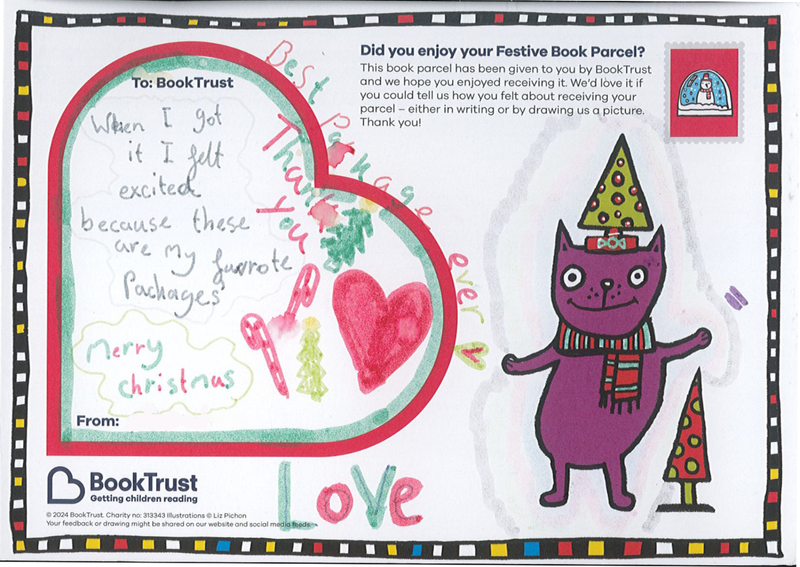 Did you enjoy your Festive Book Parcel?
This book parcel has been given to you by BookTrust
and we hope you enjoyed receiving it. We'd love it if
you could tell us how you felt about receiving your
parcel – either in writing or by drawing us a picture.
Thank you!
To: BookTrust
When I got
it I felt
excited
because these
are my favrote
Packages
Merry
christmas
Best Package ever
Thank
you
From:
Love
BookTrust
Getting children reading
© 2024 BookTrust. Charity no: 313343 Illustrations © Liz Pichon
Your feedback or drawing might be shared on our website and social media feeds.